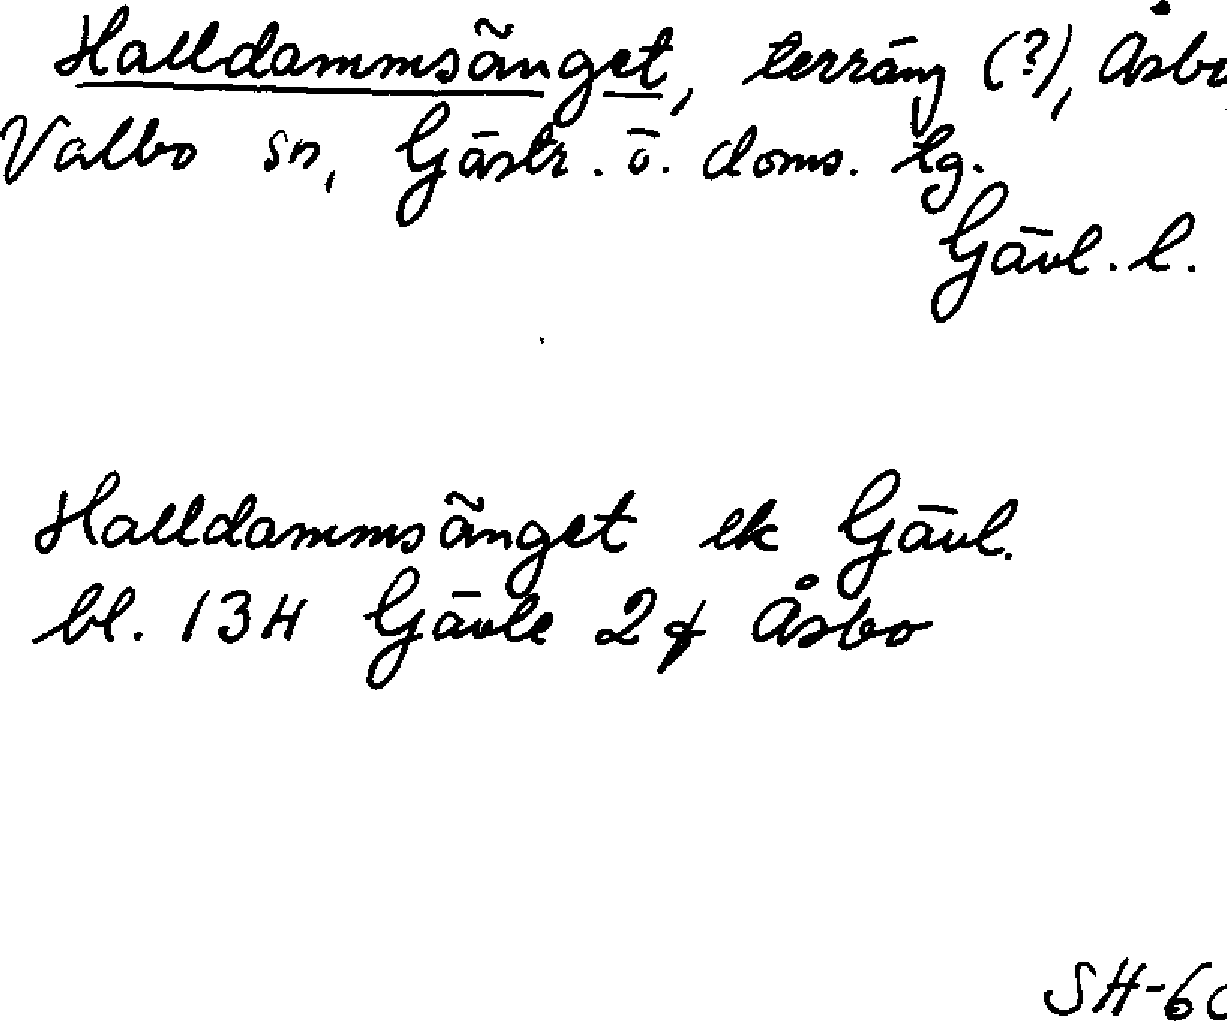 Halldammsänget, terräng (?), Åsbo,
Valbo sn, Gästr. ö. doms. lg.
Gävl. l.
Halldammsänget ek Gävl.
bl. 13H Gävle 2f Åsbo
SH-60